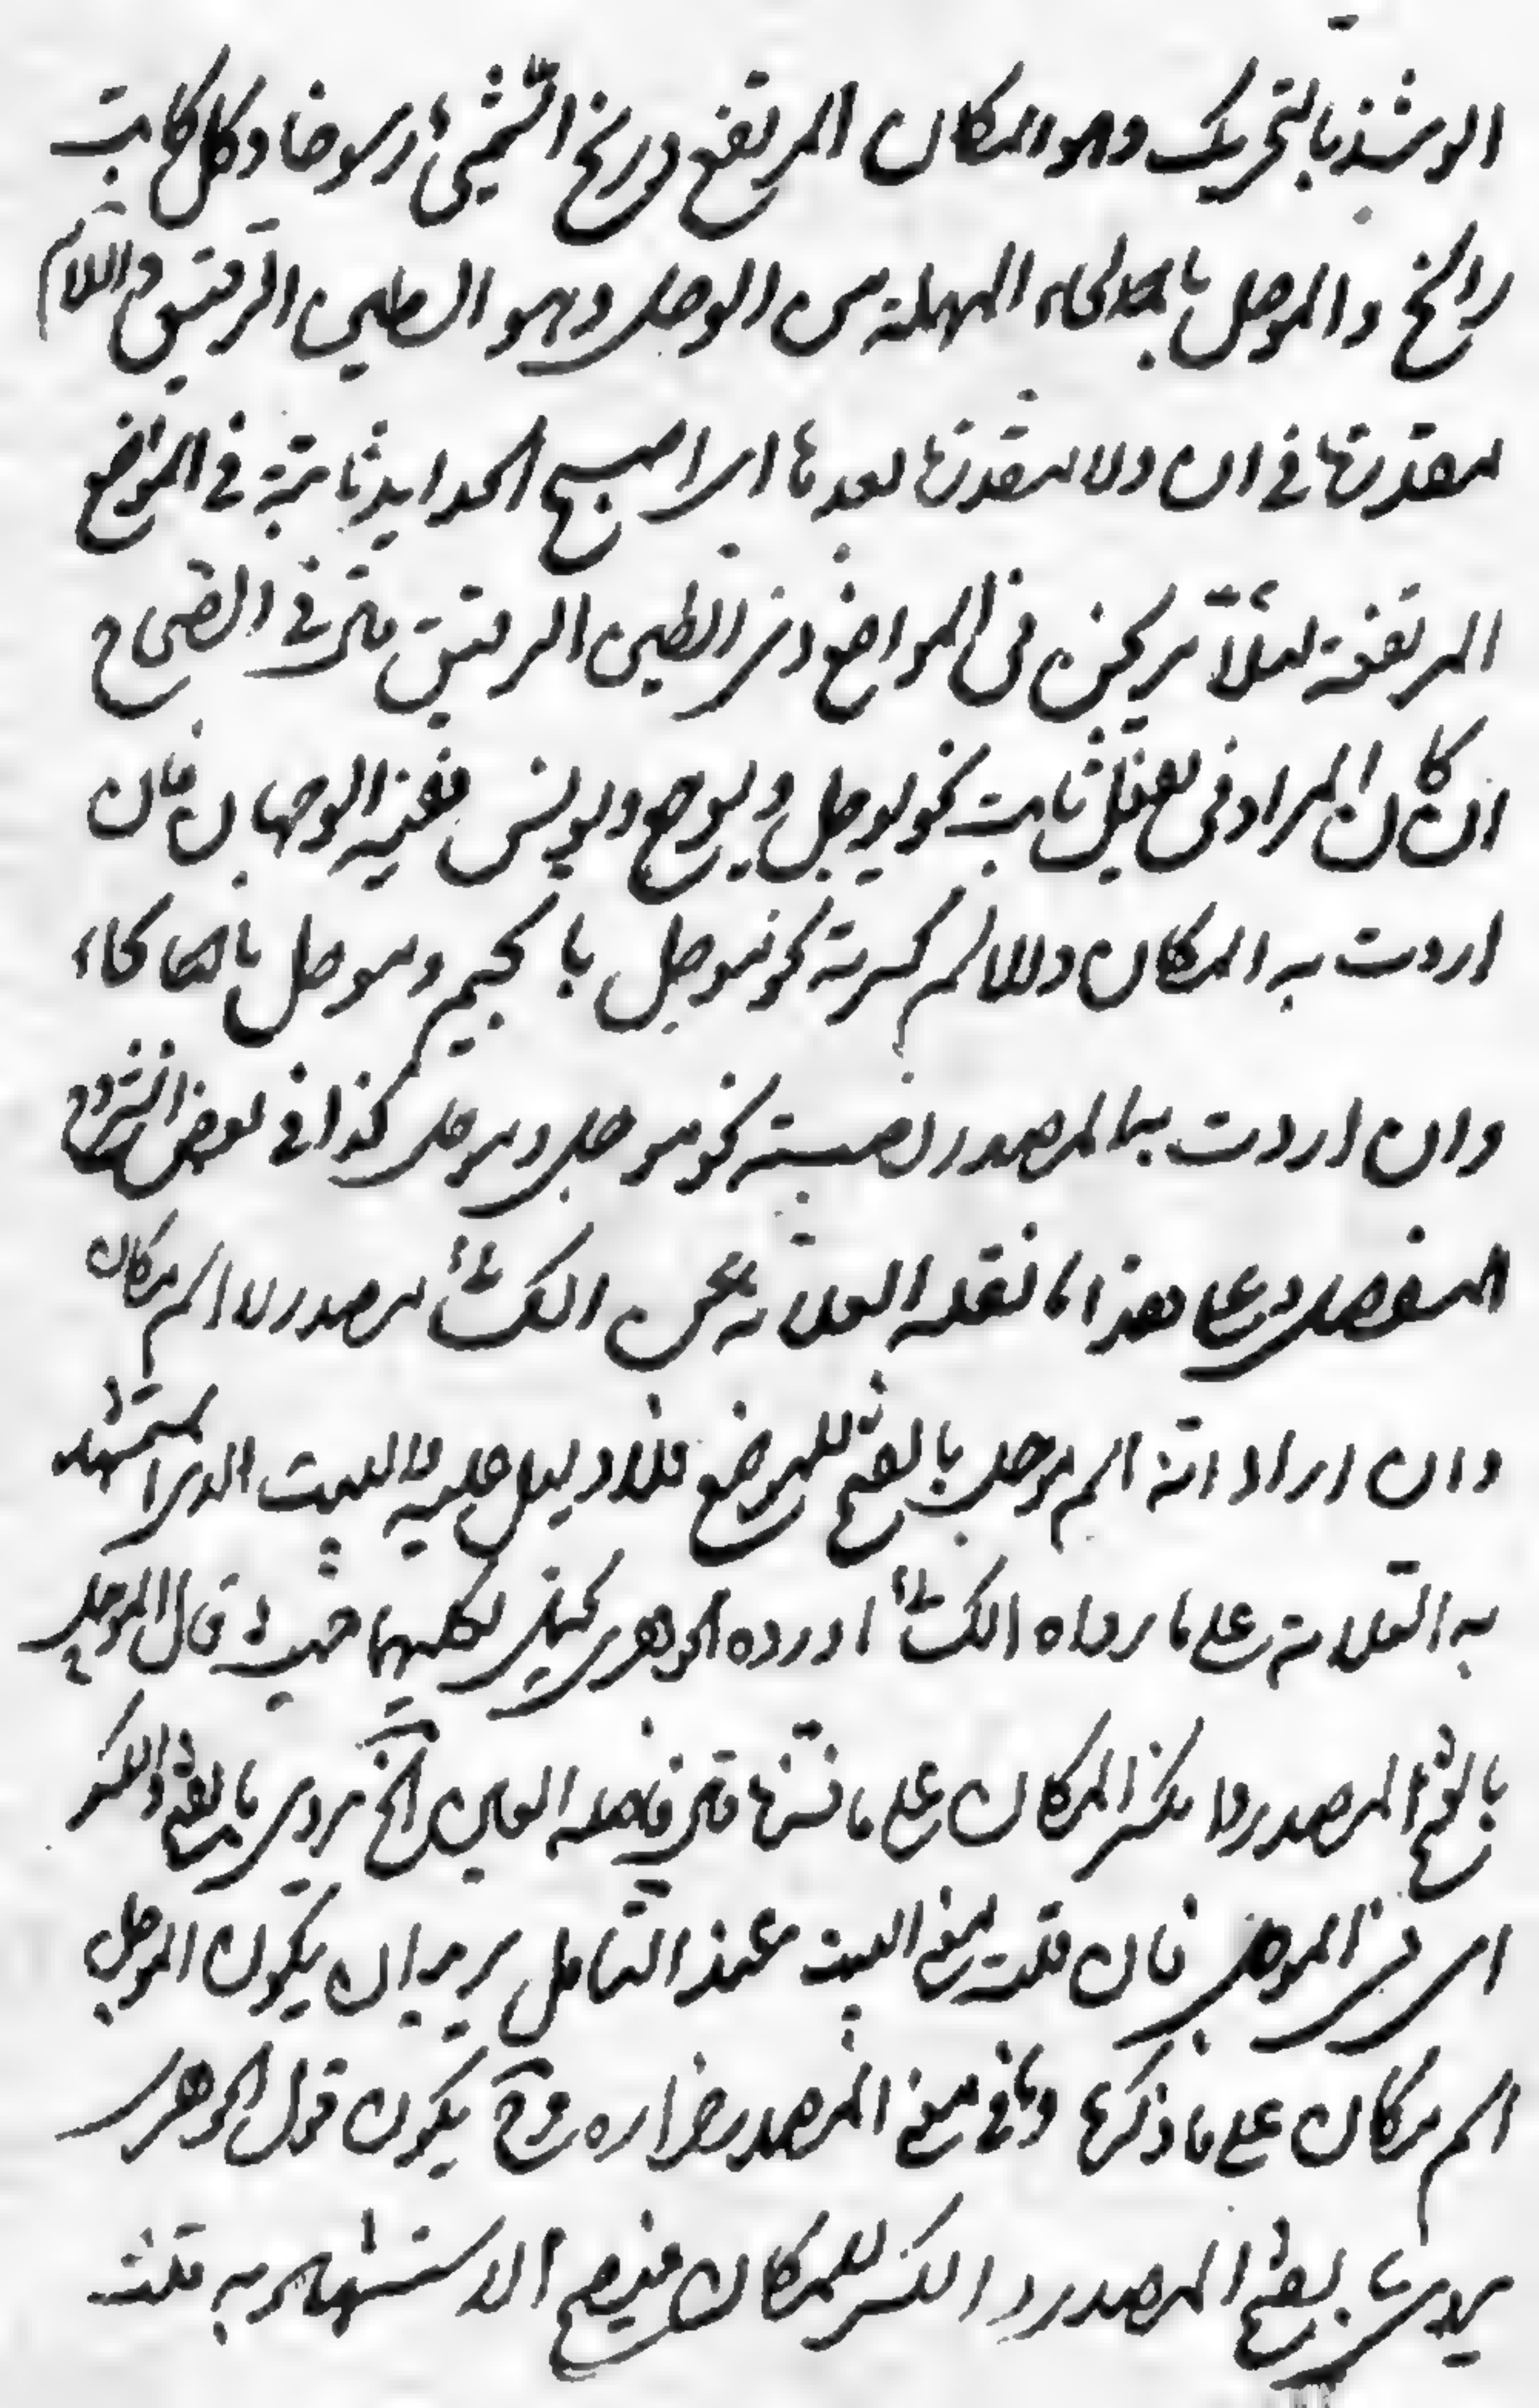 الوشذ بالتحريك وهو المكان المرتفع ورسخ الشيء رسوخا وكل ثابت
راسخ والموحل بالحاء المهملة من الوحل وهو الطين الرقيق واللام
متعدتها في ان ولا متعدتها بعدها اى اصبح الحدايد ثابتة في المواضع
المرتفعة لئلا يركن في المواضع ذى الطين الرقيق قال في الصحاح
ان كان المراد في يفعل ثابت نحو يوجل ويوجع ويونس ففيه الوجهان فان
اردت به المكان والاسم كسرته نحو موجل بالجيم وموحل بالحاء
وان اردت به المصدر نصبته نحو موجل وموحل كذا في بعض الشروح
المفصل وعلى هذا ما نقله العلامة عن الكسائى مصدر لا اسم مكان
وان اراد انه اسم موحل بالفتح للموضع فلا دليل عليه والبيت الذى استشهد
به العلامة على ما رواه الكسائى اورده الجوهرى لكليهما حيث قال الموحل
بالفتح المصدر وبالكسر المكان على ما فسرناه قال في قصله العين الخ يروى بالفتح والكسر
اى في الموحل فان قلت معنى البيت عند التأمل يريد ان يكون الموحل
اسم مكان على ما ذكرنا وفي معنى المصدر حزازه وح يكون قول الجوهرى
يروى بالفتح المصدر والكسر للمكان فيصح الاستشهاد به قلت